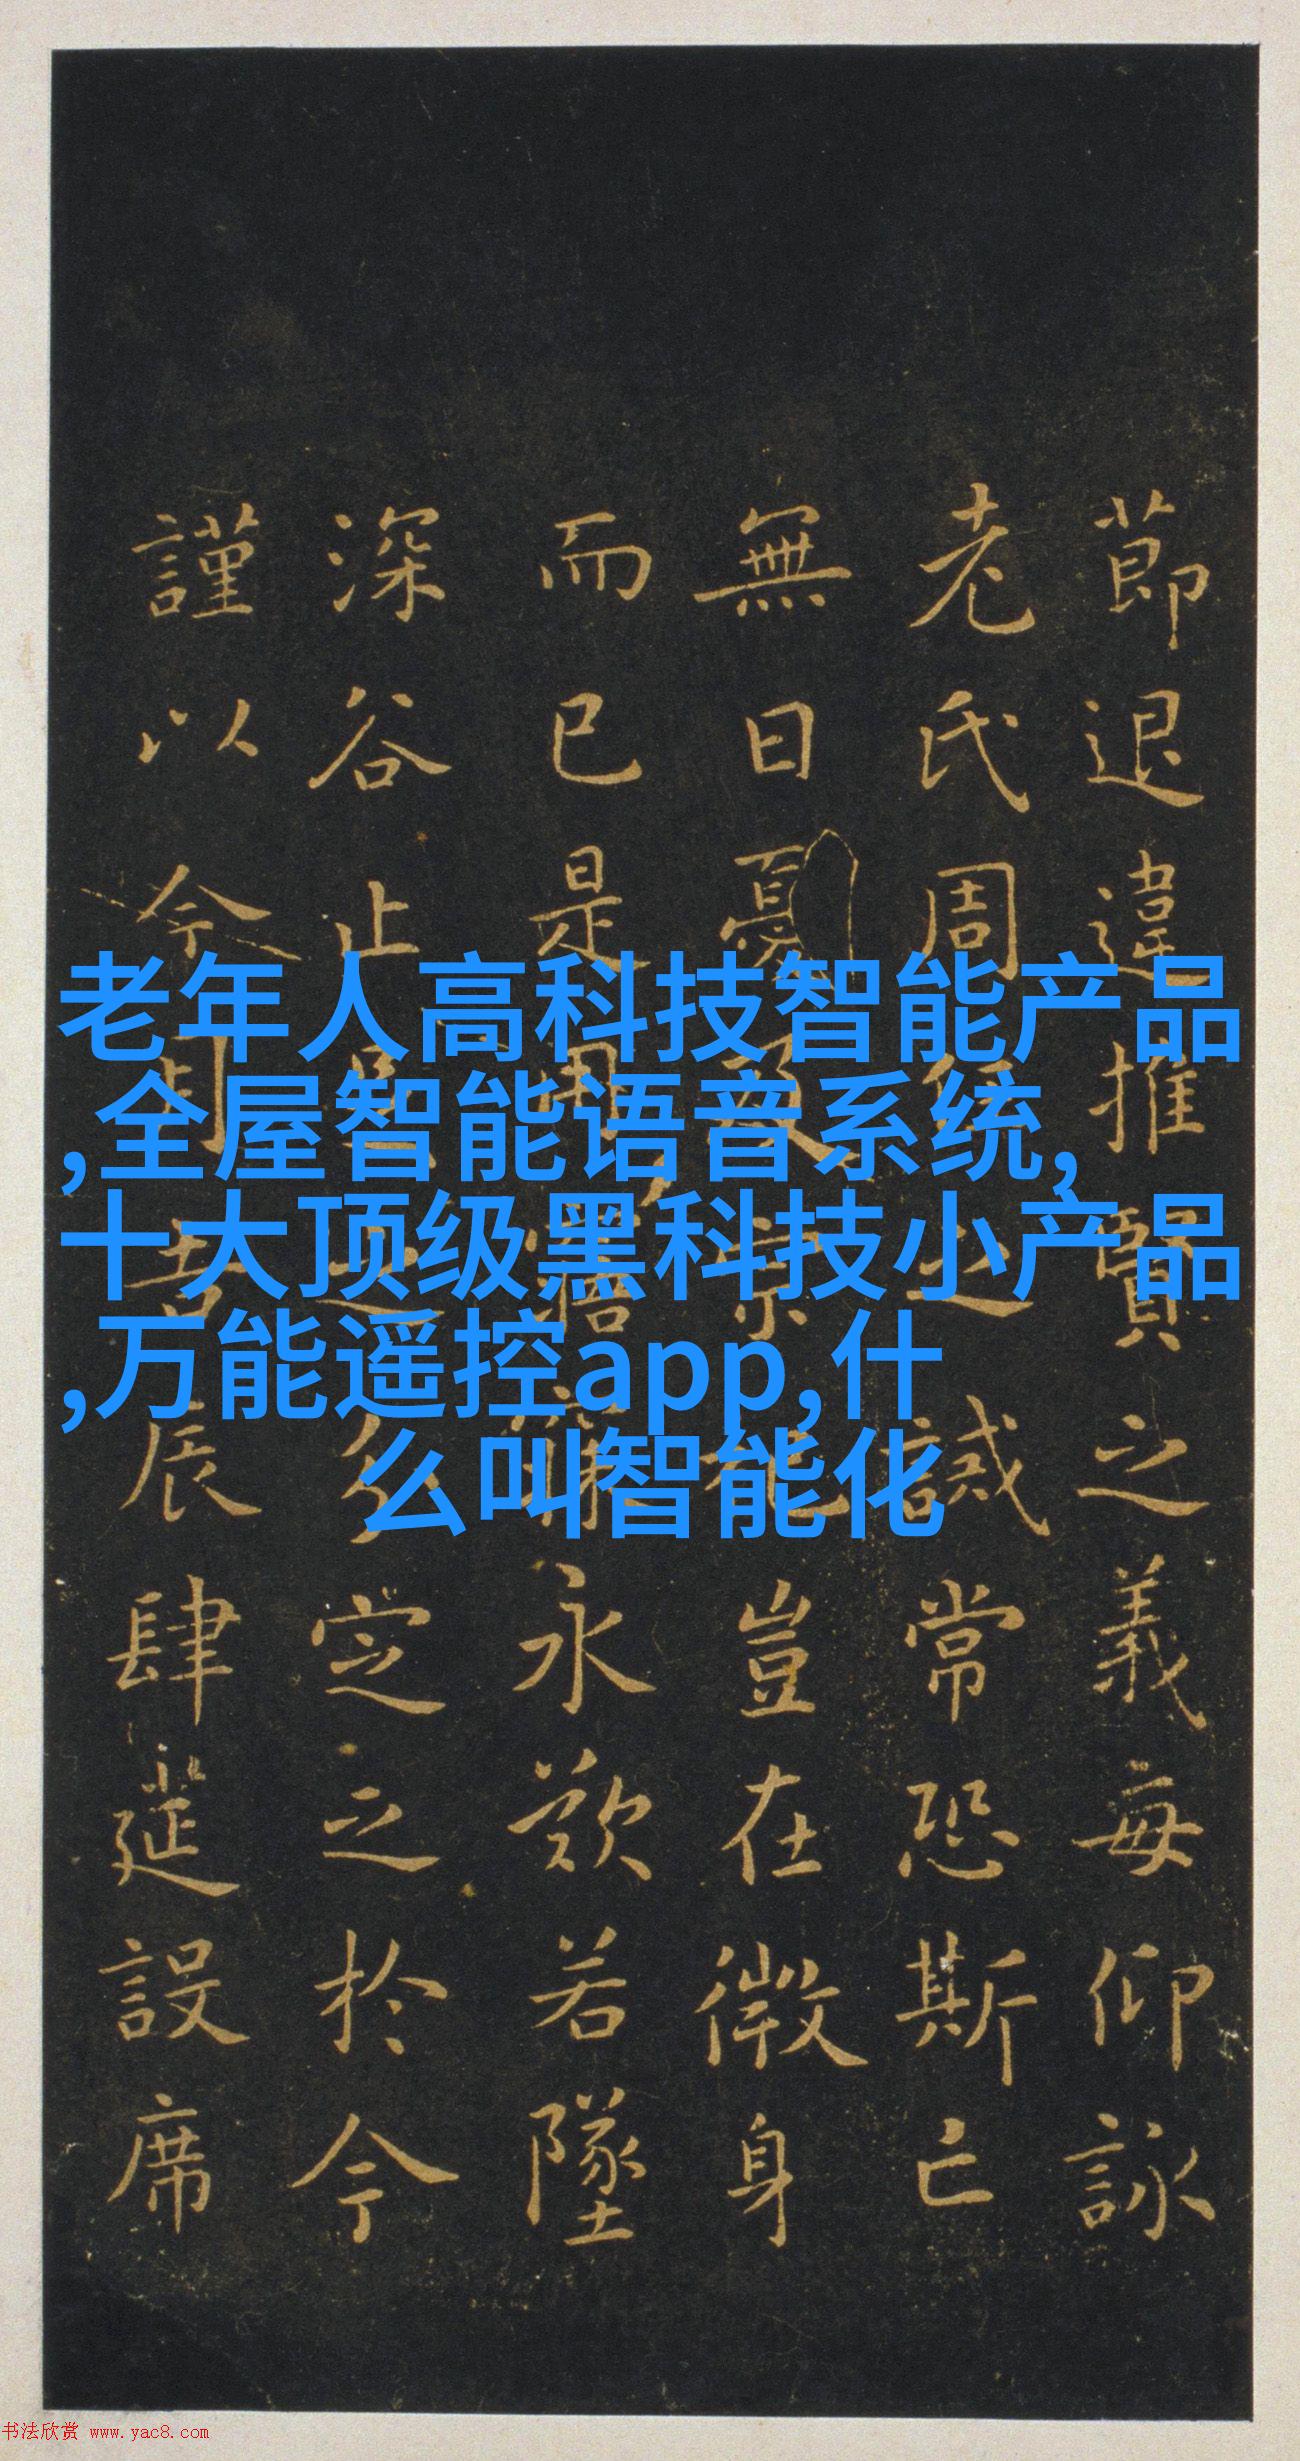 老年人高科技智能产品
,全屋智能语音系统,
十大顶级黑科技小产品
,万能遥控app,什
么叫智能化
莭退違推賢之義每仰詠
老氏周任之誡常恐斯亡
無日憂及宗祀豈在微身
而已是用寤寐永歎若墜
深谷止足之分定之於今
謹以今月吉辰肆筵設席
书法欣赏 www.yac8.com